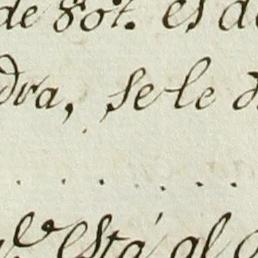 de 80t. es de
dra, se le d
. . . . . . .
está al